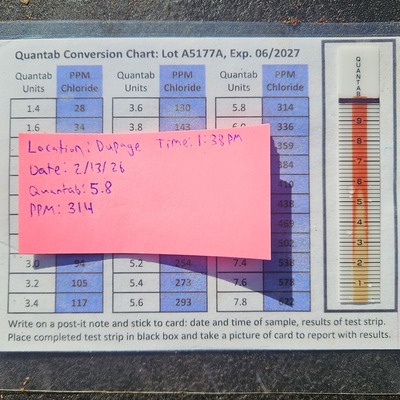 Quantab Conversion Chart: Lot A5177A, Exp. 06/2027
Quantab Units PPM Chloride Quantab Units PPM Chloride Quantab Units PPM Chloride
1.4 28 3.6 130 5.8 314
1.6 34 3.8 143 6.0 336
359
384
410
438
469
502
3.0 94 5.2 254 7.4 538
3.2 105 5.4 273 7.6 578
3.4 117 5.6 293 7.8 622
Location: Dupage Time: 1:38 PM
Date: 2/13/26
Quantab: 5.8
PPM: 314
QUANTAB
9
8
7
6
5
4
3
2
1
Write on a post-it note and stick to card: date and time of sample, results of test strip.
Place completed test strip in black box and take a picture of card to report with results.